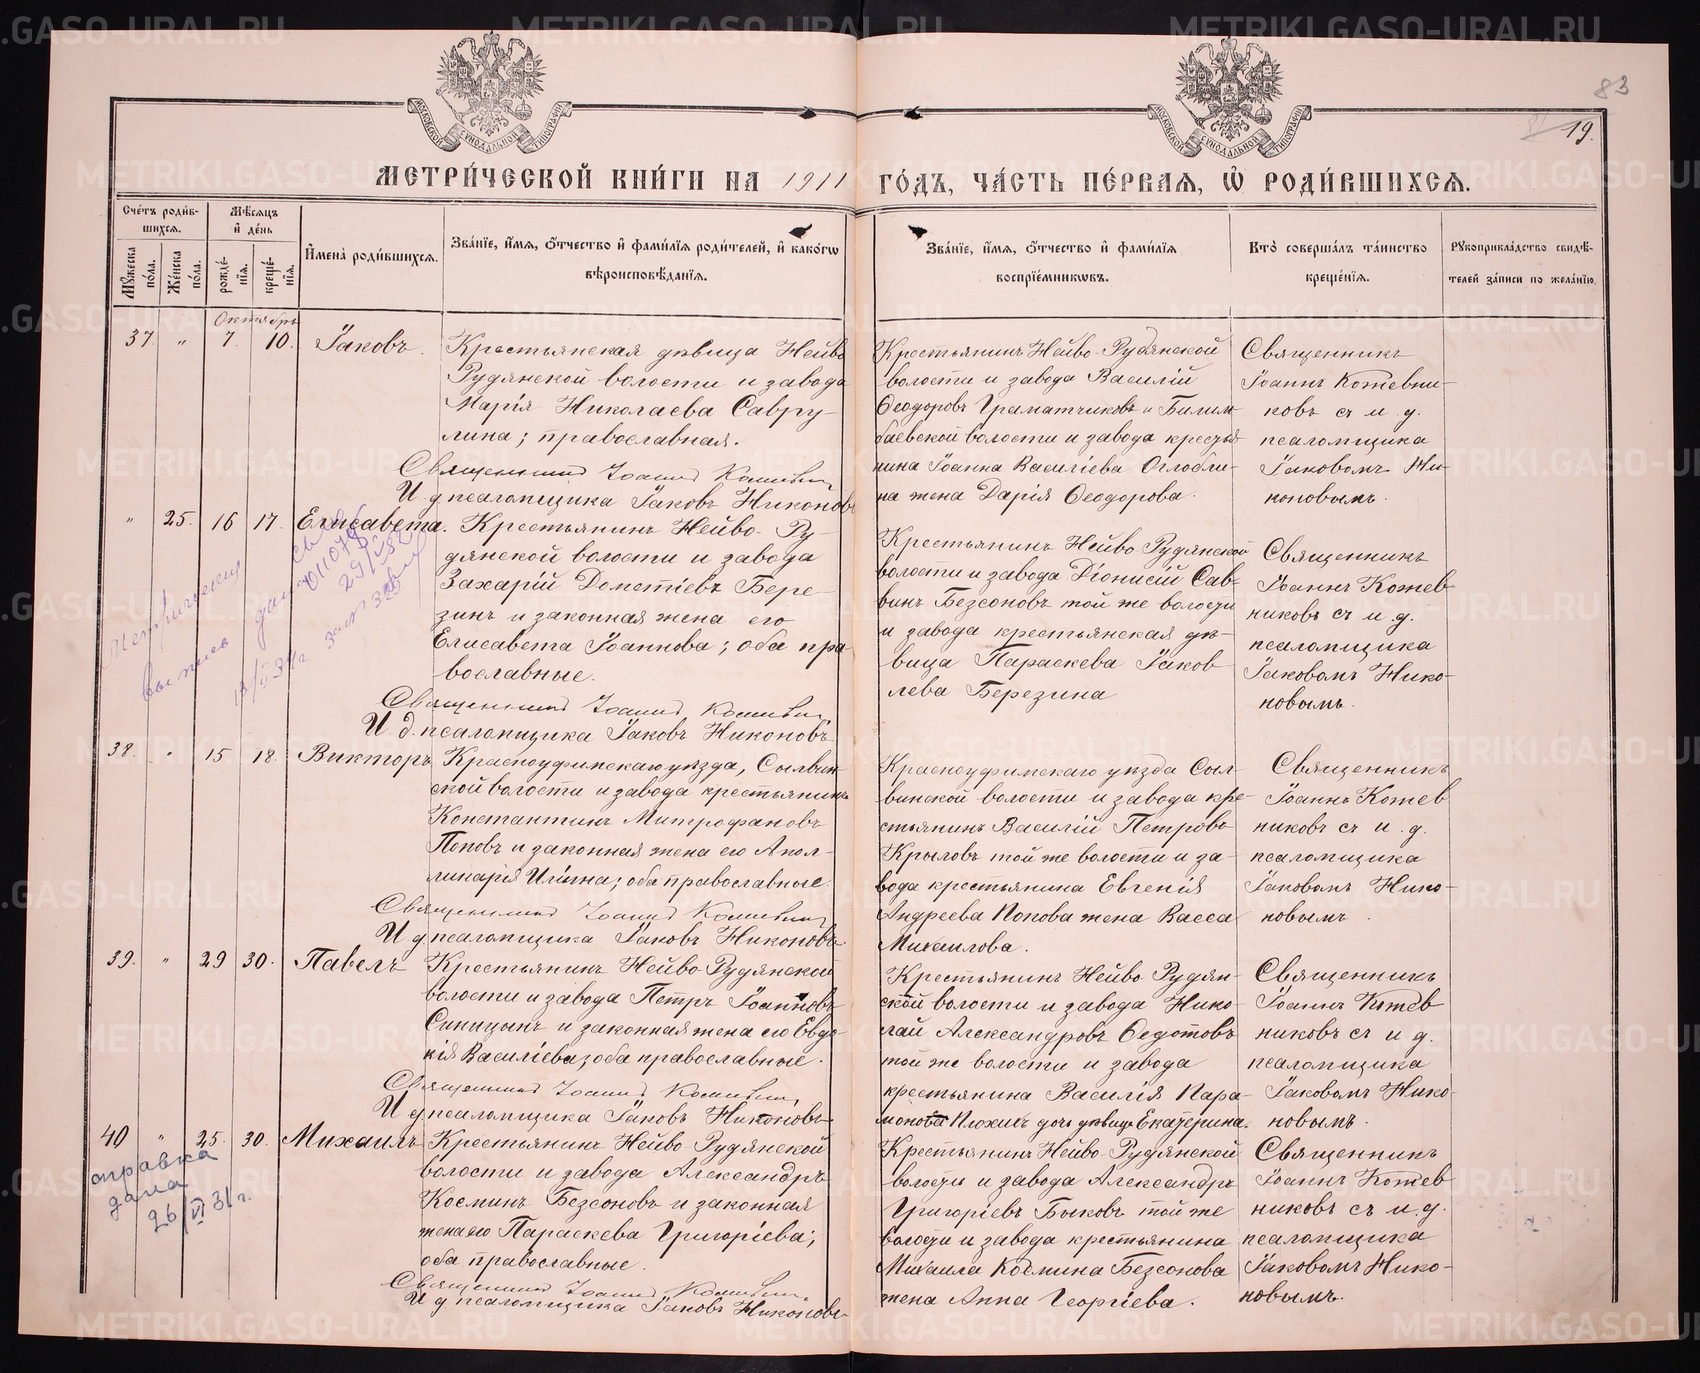 83
19.
МЕТРИ́ЧЕСКОЙ КНИ́ГИ НА 1911 ГО́ДЪ, ЧА́СТЬ ПЕ́РВАЯ, Ѡ҆ РОДИ́ВШИХСЯ.
Сче́тъ роди́в-
шихся.
Мѣ́сяцъ
и҆ де́нь
Мꙋ́жеска по́ла.
Же́нска по́ла.
рожде́-
нїѧ.
креще́-
нїѧ.
И҆мена̀ роди́вшихся.
Зва́нїе, и҆́мѧ, ѻ҆́тчество и҆ фами́лїѧ роди́телей, и҆ како́гѡ
вѣроисповѣ́данїѧ.
Зва́нїе, и҆́мѧ, ѻ҆́тчество и҆ фами́лїѧ
воспрїе́мникѡвъ.
Кто̀ соверша́лъ та́инство
креще́нїѧ.
Рꙋкоприкла́дство свидѣ́-
телей за́писи по жела́нїю.
Октябрь
37 " 7. 10. Іаковъ
Крестьянская дѣвица Нейво
Рудянской волости и завода
Марія Николаева Савру-
лина; православная.
Священникъ Іоаннъ Кожевни
И д псаломщика Іаковъ Никоновъ
Крестьянинъ Нейво-Рудянской
волости и завода Василій
Ѳеодоровъ Граматчиковъ и Билим-
баевской волости и завода крестья
нина Іоанна Василіева Оглобли-
на жена Дарія Ѳеодорова.
Священникъ
Іоаннъ Кожевни-
ковъ съ и. д.
псаломщика
Іаковомъ Ни-
коновымъ.
" 25. 16 17. Елисавета.
Крестьянинъ Нейво-Ру-
дянской волости и завода
Захарій Дометіевъ Бере-
зинъ и законная жена его
Елисавета Іоаннова; оба пра
вославные.
Священникъ Іоаннъ Кожевни
И д. псаломщика Іаковъ Никоновъ
Крестьянинъ Нейво Рудянской
волости и завода Діонисій Сав-
винъ Безсоновъ той же волости
и завода крестьянская дѣ-
вица Параскева Іаков-
лева Березина
Священникъ
Іоаннъ Кожев-
никовъ съ и. д.
псаломщика
Іаковомъ Нико-
новымъ.
38. " 15 18 Викторъ
Красноуфимскаго уѣзда, Сылвин
ской волости и завода крестьянинъ
Константинъ Митрофановъ
Поповъ и законная жена его Апол-
линарія Иліина; оба православные.
Священникъ Іоаннъ Кожевни
И д псаломщика Іаковъ Никоновъ.
Красноуфимскаго уѣзда Сыл-
винской волости и завода кре-
стьянинъ Василій Петровъ
Крыловъ той же волости и за-
вода крестьянина Евгенія
Андреева Попова жена Васса
Михаилова.
Священникъ
Іоаннъ Кожев
никовъ съ и. д.
псаломщика
Іаковомъ Нико-
новымъ
39. " 29 30. Павелъ
Крестьянинъ Нейво-Рудянской
волости и завода Петръ Іоанновъ
Синицынъ и законная жена его Евдо-
кія Василіева; оба православные.
Священникъ Іоаннъ Кожевни
И д псаломщика Іаковъ Никоновъ
Крестьянинъ Нейво Рудян-
ской волости и завода Нико-
лай Александровъ Ѳедотовъ
той же волости и завода
крестьянина Василія Пара-
монова Плохихъ дочь дѣвица Екатерина.
Священникъ
Іоаннъ Кожев
никовъ съ и д.
псаломщика
Іаковомъ Нико-
новымъ.
40 " 25. 30. Михаилъ
Крестьянинъ Нейво-Рудянской
волости и завода Александръ
Косминъ Безсоновъ и законная
жена его Параскева Григоріева;
оба православные.
Священникъ Іоаннъ Кожевни
И д псаломщика Іаковъ Никоновъ
Крестьянинъ Нейво-Рудянской
волости и завода Александръ
Григоріевъ Быковъ той же
волости и завода крестьянина
Михаила Космина Безсонова
жена Анна Георгіева.
Священникъ
Іоаннъ Кожев
никовъ съ и. д.
псаломщика
Іаковомъ Нико-
новымъ.
справка
дана
26/VI 31 г.
METRIKI.GASO-URAL.RU